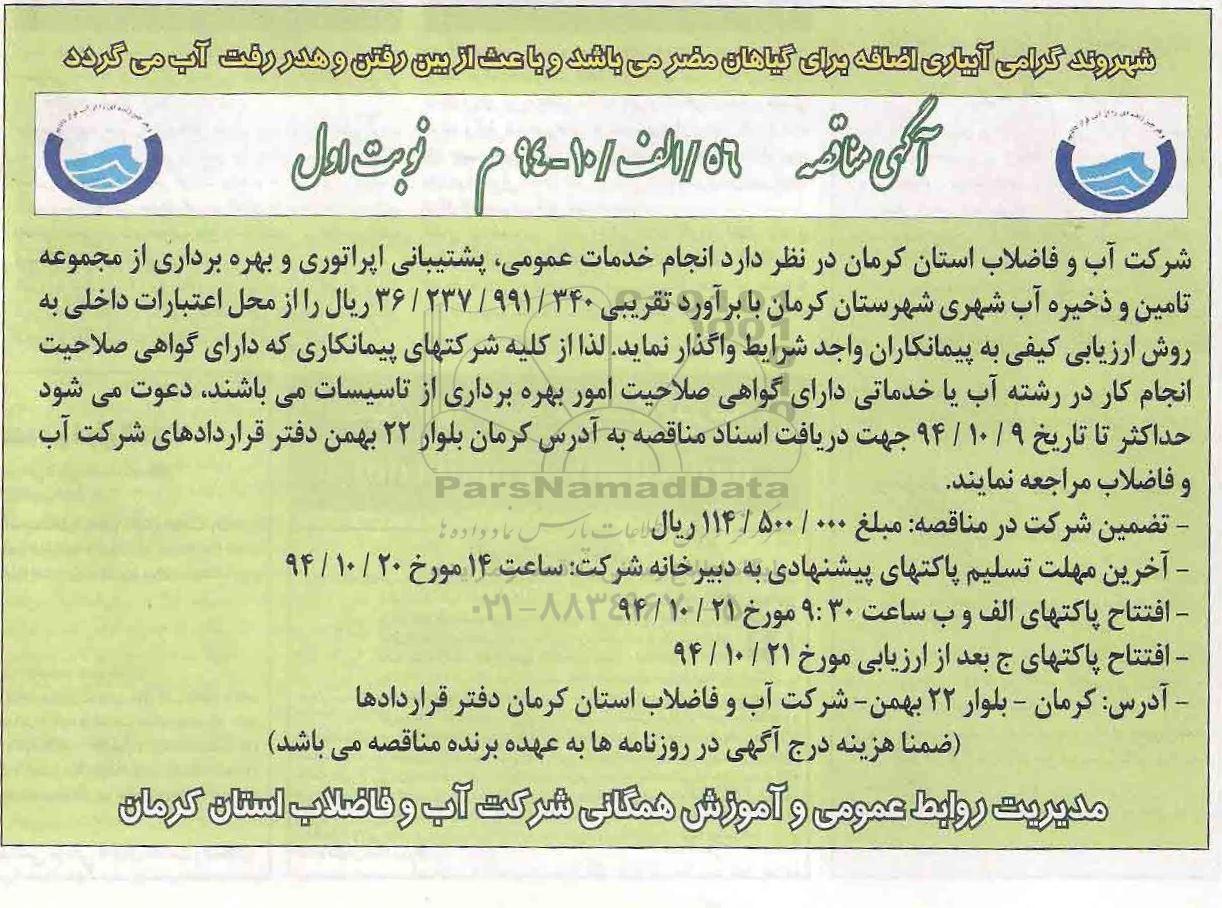 شهروند گرامی آبیاری اضافه برای گیاهان مضر می باشد و باعث از بین رفتن و هدر رفت آب می گردد
آگهی مناقصه ۵۶/الف/۱۰-۹۴ م نوبت اول
شرکت آب و فاضلاب استان کرمان در نظر دارد انجام خدمات عمومی، پشتیبانی اپراتوری و بهره برداری از مجموعه
تامین و ذخیره آب شهری شهرستان کرمان با برآورد تقریبی ۳۴۰ / ۹۹۱ / ۲۳۷ / ۳۶ ریال را از محل اعتبارات داخلی به
روش ارزیابی کیفی به پیمانکاران واجد شرایط واگذار نماید. لذا از کلیه شرکتهای پیمانکاری که دارای گواهی صلاحیت
انجام کار در رشته آب یا خدماتی دارای گواهی صلاحیت امور بهره برداری از تاسیسات می باشند، دعوت می شود
حداکثر تا تاریخ ۹ / ۱۰ / ۹۴ جهت دریافت اسناد مناقصه به آدرس کرمان بلوار ۲۲ بهمن دفتر قراردادهای شرکت آب
و فاضلاب مراجعه نمایند.
ParsNamadData
- تضمین شرکت در مناقصه: مبلغ ۰۰۰ / ۵۰۰ / ۱۱۴ ریال
- آخرین مهلت تسلیم پاکتهای پیشنهادی به دبیرخانه شرکت: ساعت ۱۴ مورخ ۲۰ / ۱۰ / ۹۴
- افتتاح پاکتهای الف و ب ساعت ۳۰ :۹ مورخ ۲۱ / ۱۰ / ۹۴
- افتتاح پاکتهای ج بعد از ارزیابی مورخ ۲۱ / ۱۰ / ۹۴
- آدرس: کرمان - بلوار ۲۲ بهمن- شرکت آب و فاضلاب استان کرمان دفتر قراردادها
(ضمنا هزینه درج آگهی در روزنامه ها به عهده برنده مناقصه می باشد)
مدیریت روابط عمومی و آموزش همگانی شرکت آب و فاضلاب استان کرمان